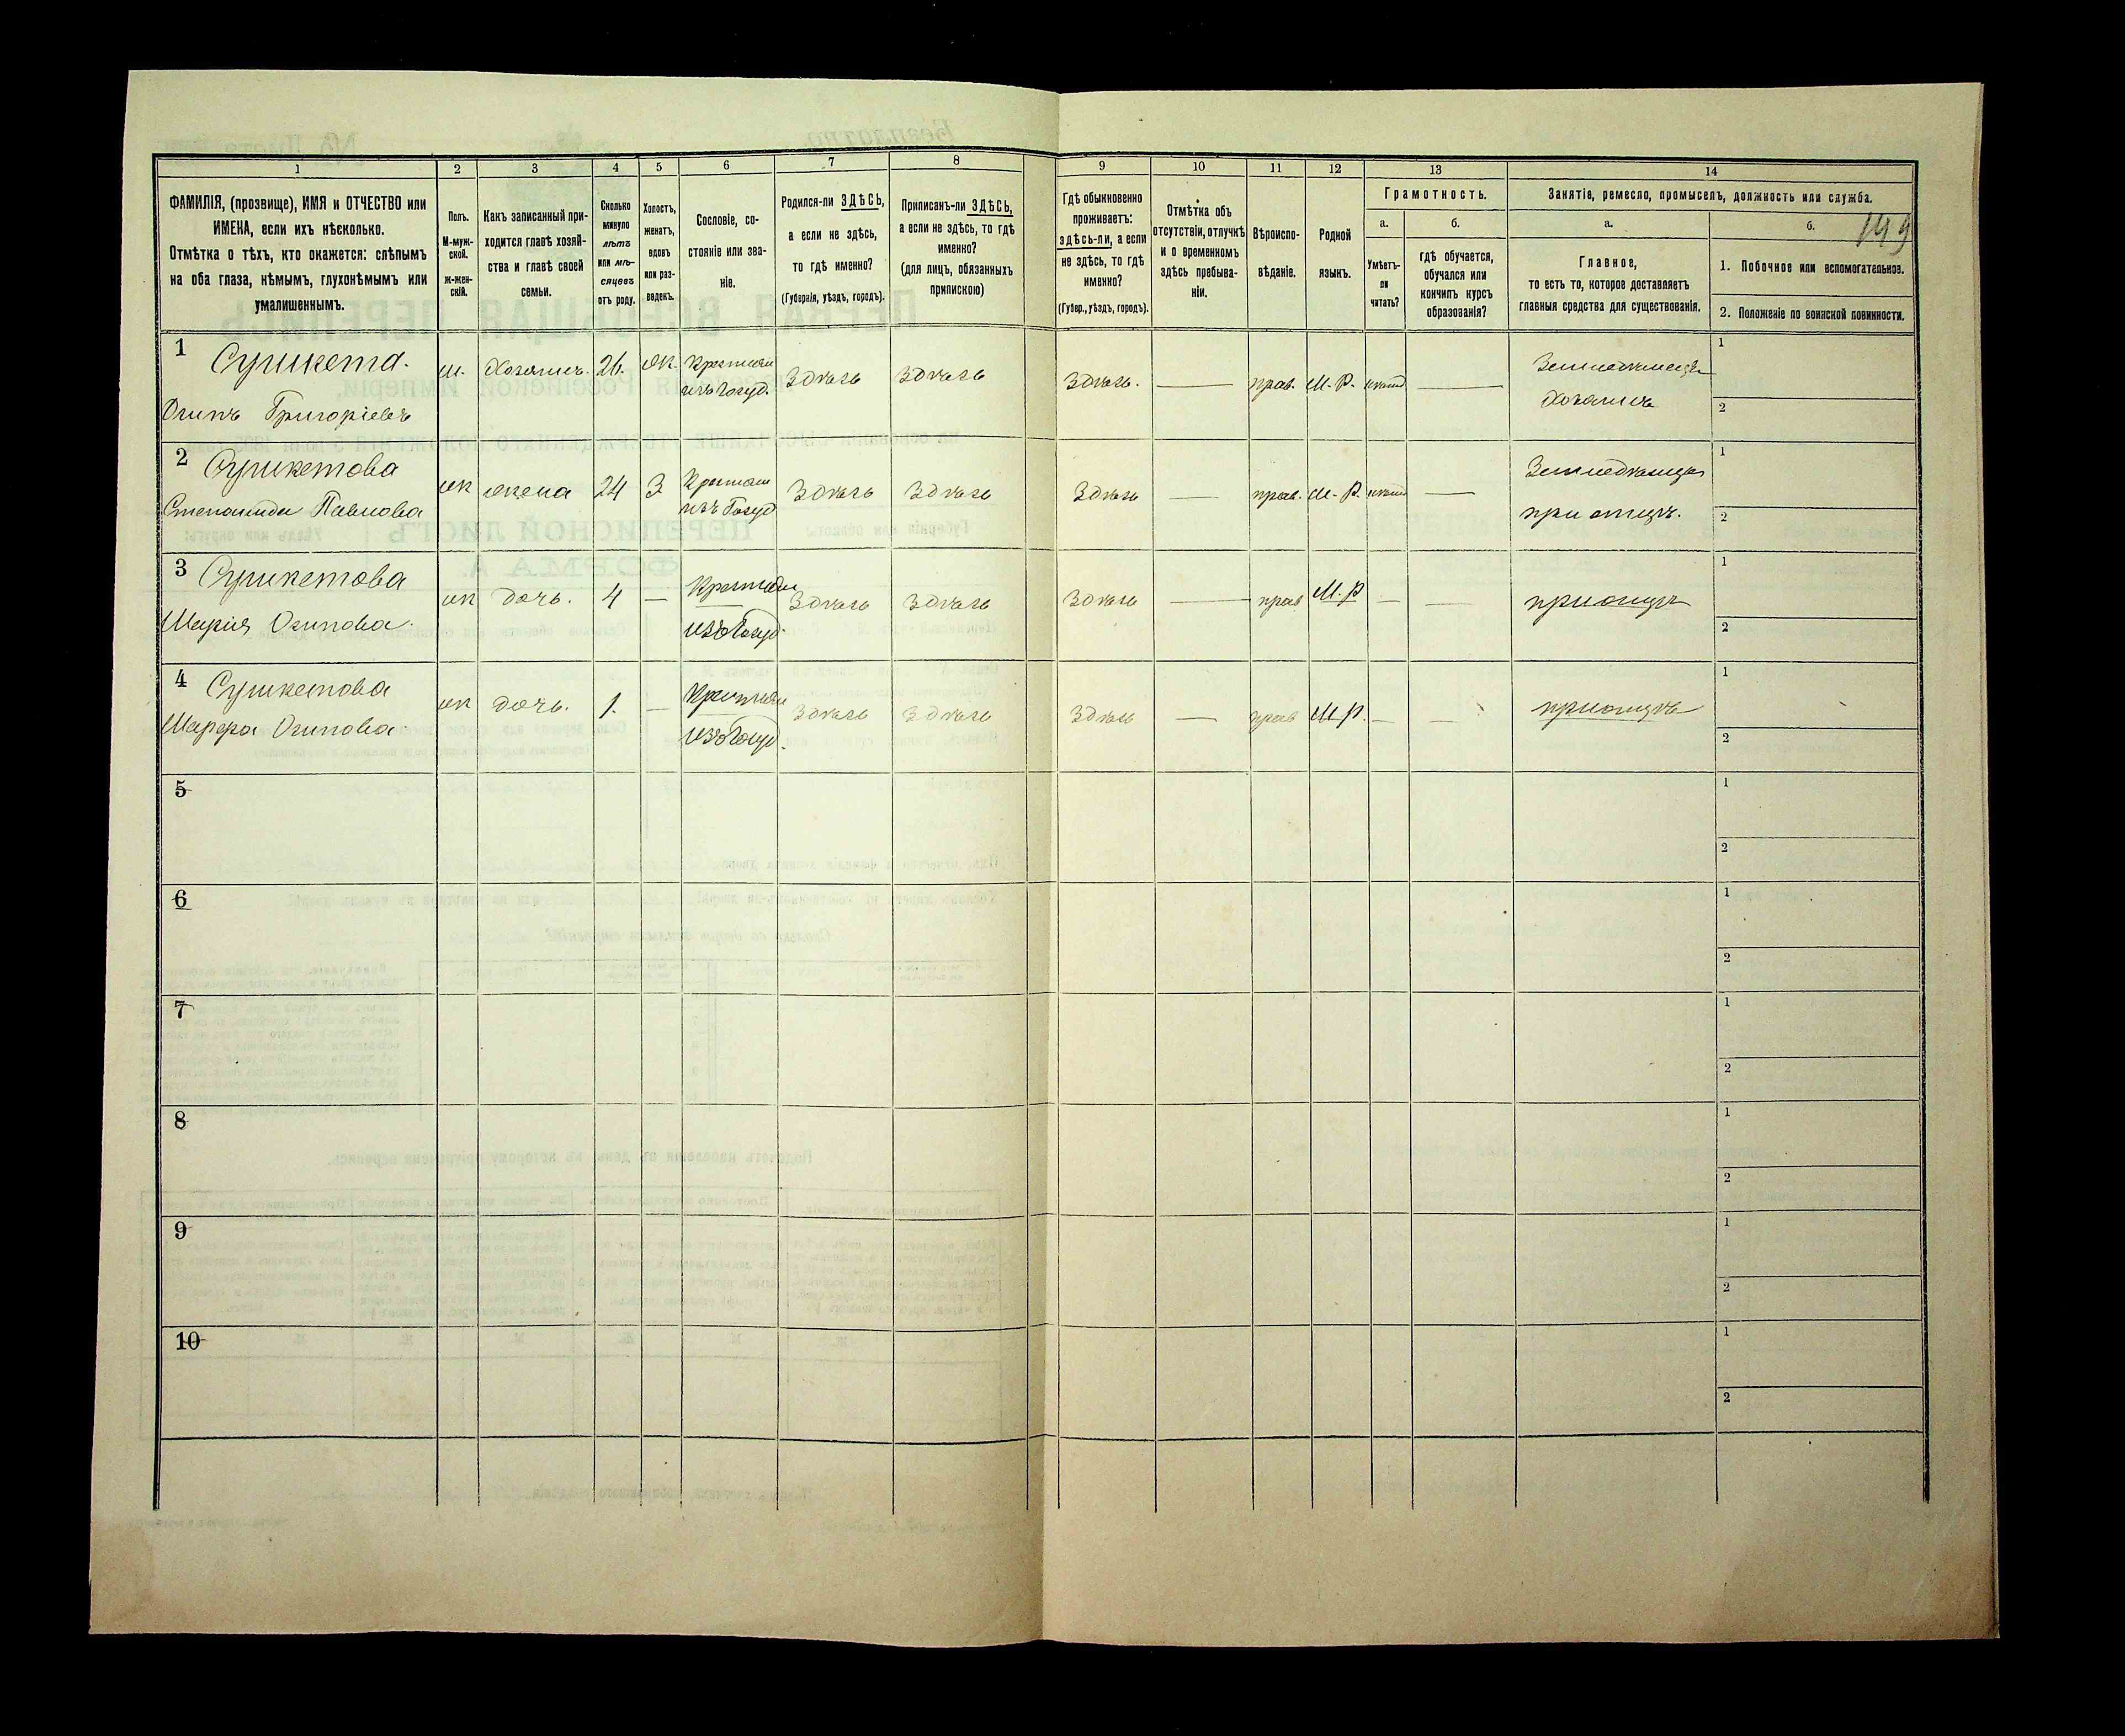 1 2 3 4 5 6 7 8 9 10 11 12 13 14
ФАМИЛІЯ, (прозвище), ИМЯ и ОТЧЕСТВО или
ИМЕНА, если ихъ нѣсколько.
Отмѣтка о тѣхъ, кто окажется: слѣпымъ
на оба глаза, нѣмымъ, глухонѣмымъ или
умалишеннымъ.
Полъ.
М-муж-
ской.
Ж-жен-
скій.
Какъ записанный при-
ходится главѣ хозяй-
ства и главѣ своей
семьи.
Сколько
минуло
лѣтъ
или мѣ-
сяцевъ
отъ роду.
Холостъ,
женатъ,
вдовъ
или раз-
веденъ.
Сословіе, со-
стояніе или зва-
ніе.
Родился-ли ЗДѢСЬ,
а если не здѣсь,
то гдѣ именно?
(Губернія, уѣздъ, городъ).
Приписанъ-ли ЗДѢСЬ,
а если не здѣсь, то гдѣ
именно?
(для лицъ, обязанныхъ
припискою)
Гдѣ обыкновенно
проживаетъ:
здѣсь-ли, а если
не здѣсь, то гдѣ
именно?
(Губер., уѣздъ, городъ).
Отмѣтка объ
отсутствіи, отлучкѣ
и о временномъ
здѣсь пребыва-
ніи.
Вѣроиспо-
вѣданіе.
Родной
языкъ.
Грамотность.
а.
Умѣетъ-
ли
читать?
б.
гдѣ обучается,
обучался или
кончилъ курсъ
образованія?
Занятіе, ремесло, промыселъ, должность или служба.
а.
Главное,
то есть то, которое доставляетъ
главныя средства для существованія.
б.
149
1. Побочное или вспомогательное.
2. Положеніе по воинской повинности.
1 Сушкета.
Осипъ Григоріевъ
м. Хозяинъ. 26. Ж. Крестьян
изъ Госуд. Здѣсь Здѣсь Здѣсь. — прав. М.-Р. — Земледѣлецъ
Хозяинъ
1
2
2 Сушкетова
Степанида Павлова
ж жена 24 З Крестьян
изъ Госуд Здѣсь Здѣсь Здѣсь — прав. М.-Р. — Земледѣлецъ
при отцѣ.
1
2
3 Сушкетова
Марія Осипова.
ж дочь. 4 — Крестьян
изъ Госуд. Здѣсь Здѣсь Здѣсь — прав М.Р — — при отцѣ
1
2
4 Сушкетова
Марфа Осипова.
ж дочь. 1. — Крестьян
изъ Госуд. Здѣсь Здѣсь Здѣсь — прав М.Р. — — при отцѣ
1
2
5
1
2
6
1
2
7
1
2
8
1
2
9
1
2
10
1
2